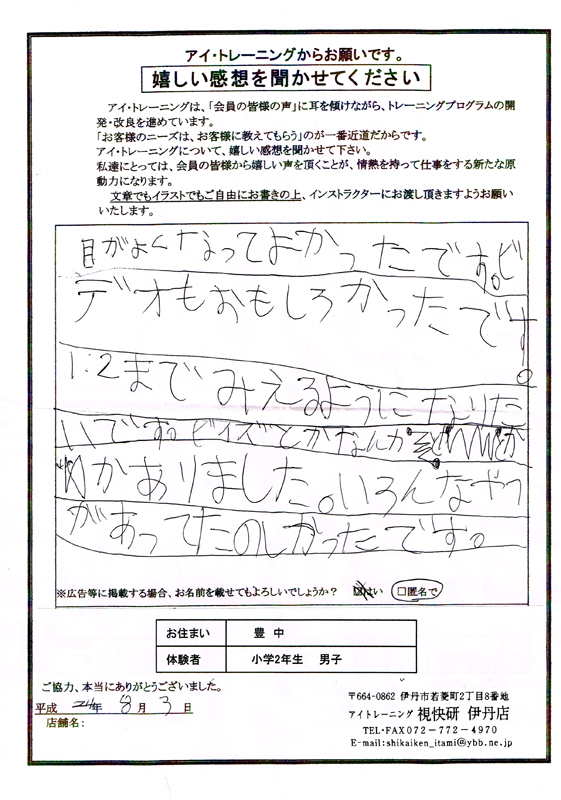 アイ・トレーニングからお願いです。
嬉しい感想を聞かせてください
アイ・トレーニングは、「会員の皆様の声」に耳を傾けながら、トレーニングプログラムの開
発・改良を進めています。
「お客様のニーズは、お客様に教えてもらう」のが一番近道だからです。
アイ・トレーニングについて、嬉しい感想を聞かせて下さい。
私達にとっては、会員の皆様から嬉しい声を頂くことが、情熱を持って仕事をする新たな原
動力になります。
文章でもイラストでもご自由にお書きの上、インストラクターにお渡し頂きますようお願い
いたします。
目がよくなってよかったです。ビ
デオもおもしろかったです。
1:2までみえるようになりた
いです。ビイズとかなんか
かありました。いろんなやつ
があってたのしかったです。
※広告等に掲載する場合、お名前を載せてもよろしいでしょうか? □はい □匿名で
お住まい 豊中
体験者 小学2年生 男子
ご協力、本当にありがとうございました。
平成 24年 8月 3日
店舗名:
〒664-0862 伊丹市若菱町2丁目8番地
アイトレーニング 視快研 伊丹店
TEL・FAX 072-772-4970
E-mail:shikaiken_itami@ybb.ne.jp